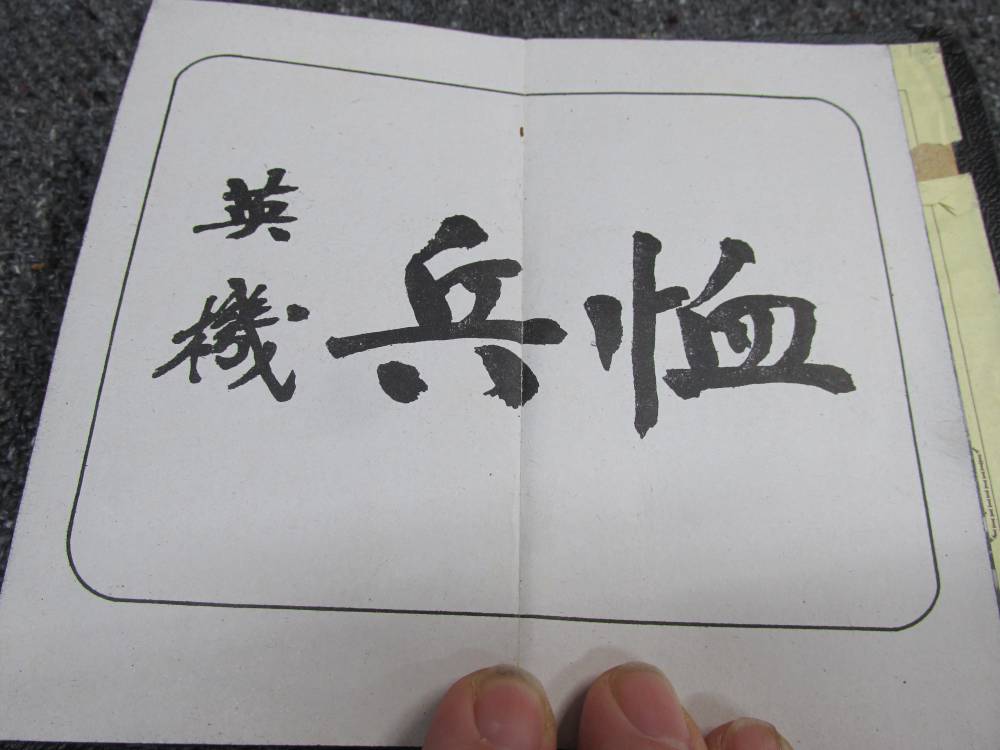 恤兵
英機